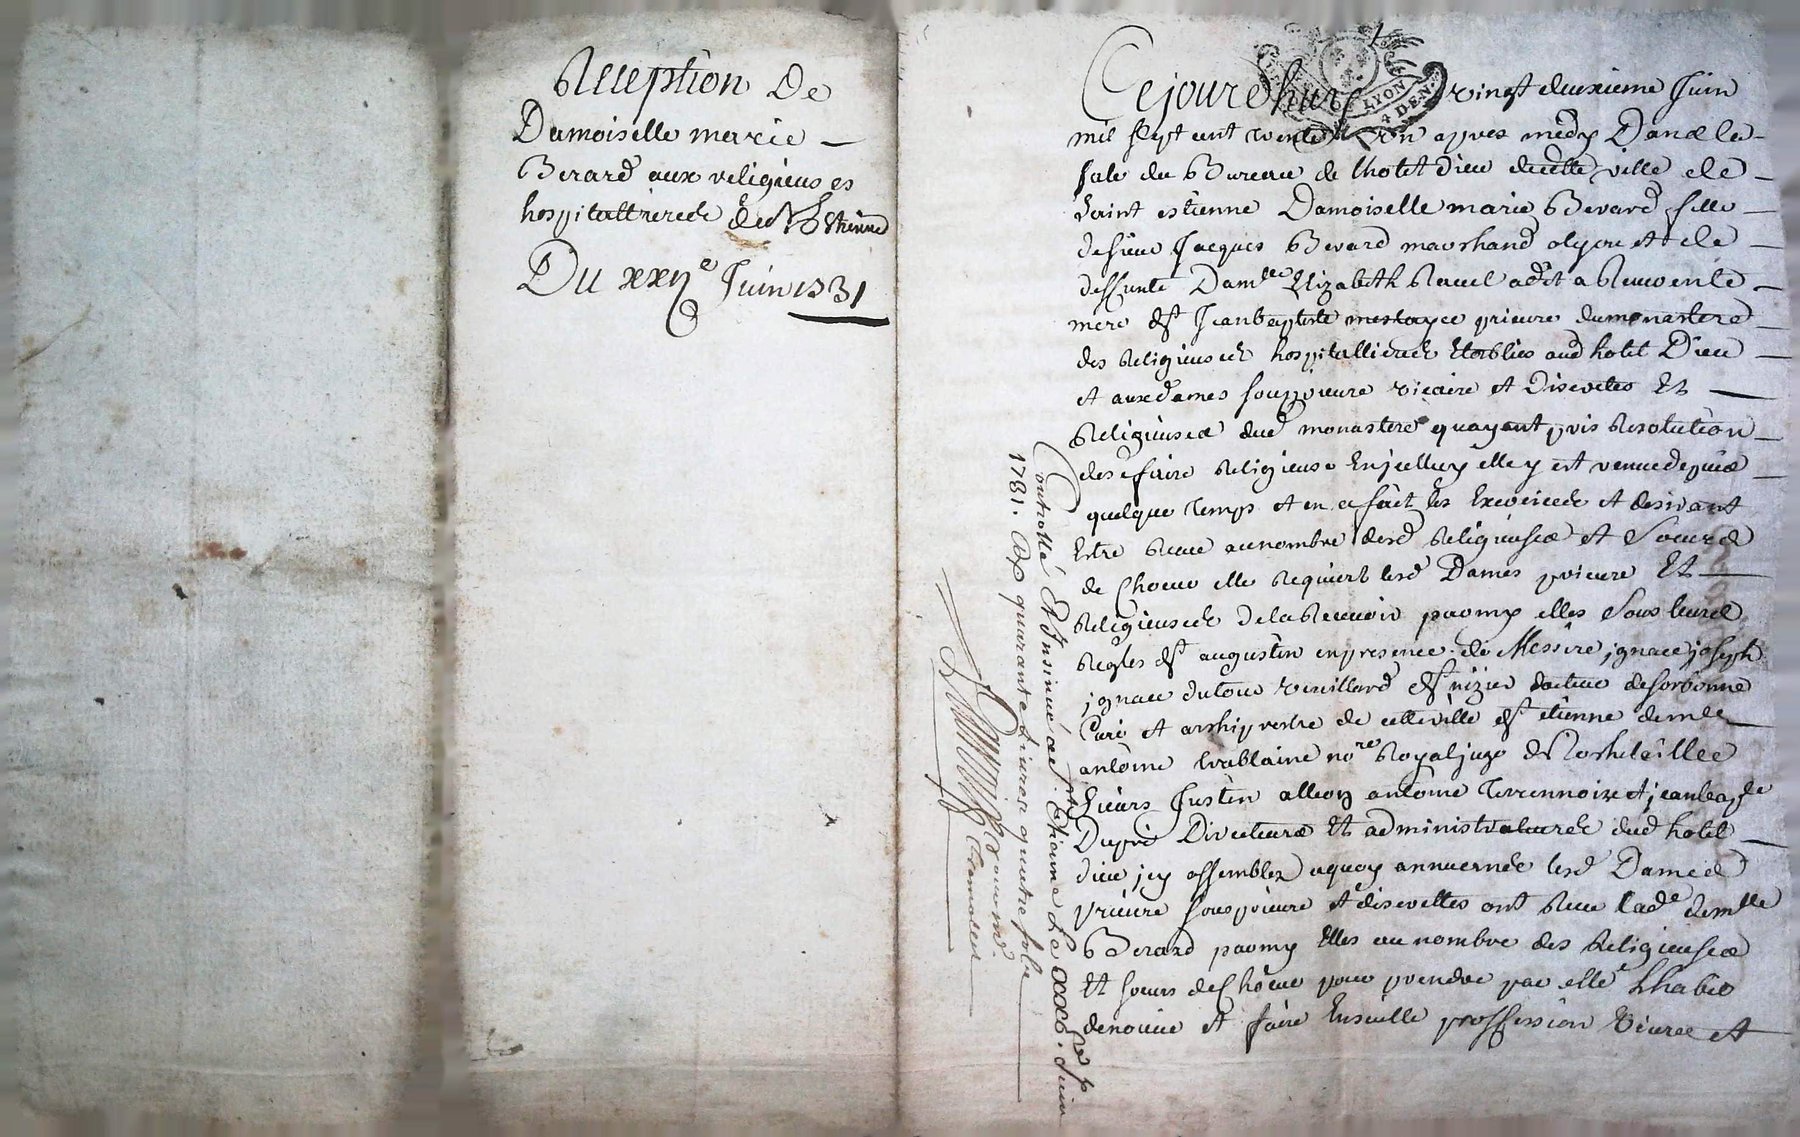 Reception De
Damoiselle marie
Berard aux religieuses
hospitallieres de St Etienne
Du xxije Juin 1731
LYON
4 DEN.
Cejourdhuy vingt deuxieme Juin
mil sept cent trente un apres midy Dans la
sale du Bureau de lhotel Dieu de cette ville de
saint estienne Damoiselle marie Berard fille
de sieur Jacques Berard marchand et de
deffunte Damlle Elizabeth Ravel
mere St Jean baptiste prieure du monastere
des Religieuses hospitallieres Etablies aud hotel Dieu
et aux dames sousprieure vicaire et Discretes Et
Religieuses dud monastere quayant pris Resolution
de se faire Religieuse Enjcelluy elle y est venue depuis
quelque temps et en a fait les Exercices et desirant
Estre Receue au nombre desd Religieuses et Soeurs
de Choeur elle Requiert lesd Dames prieure Et
Religieuses de la Recevoir parmy elles Sous leurs
Regles St augustin en presence de Messire jgnace joseph
jgnace dutour vuillard St nizier docteur de sorbonne
Curé et archiprestre de cette ville St etienne de mre
antoine trablaine nore Royal juge de Rochetaillee
sieurs Justin alleon antoine Terrenoire et jean bapte
Dupré Directeurs Et administrateurs dud hotel
dieu jcy assemblez aquoy lesd Dames
prieure sousprieure et discrettes ont Receu lade demlle
Berard parmy Elles au nombre des Religieuses
Et soeurs de Choeur pour prendre par elle Lhabit
de novice et faire Ensuitte proffession vivre et
Controllé Et Insinué a St Etienne Le juin
1731. Rx quarante livres quatre sols